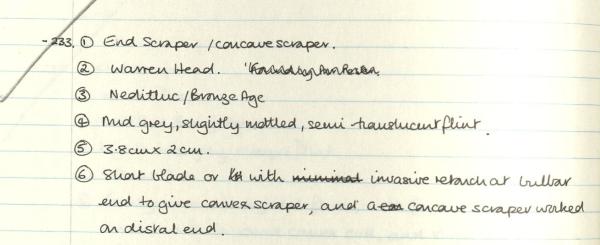 - 233. ① End Scraper / concave scraper.
② Warren Head.
③ Neolithic / Bronze Age
④ Mid grey, slightly mottled, semi-translucent flint.
⑤ 3.8cm x 2cm.
⑥ Short blade or with minimal invasive retouch at bulbar
end to give convex scraper, and concave scraper worked
on distal end.